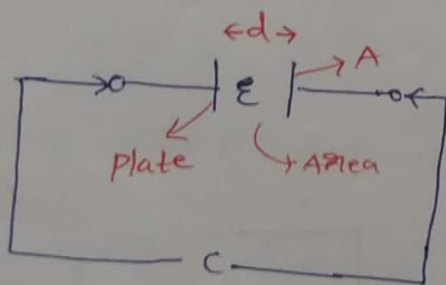 d
A
ε
plate
Area
C